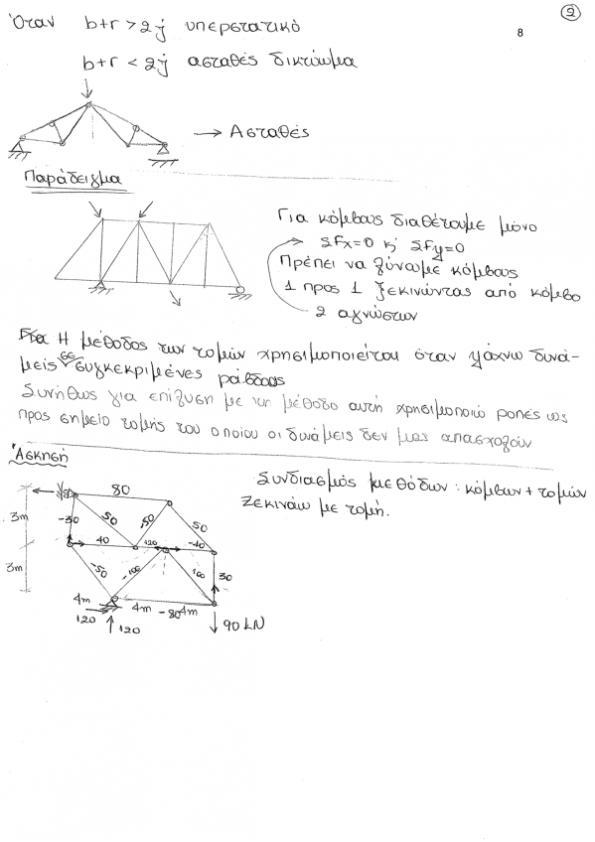 ②
8
Όταν b+r > 2j υπερστατικό
b+r < 2j ασταθές δικτύωμα
→ Ασταθές
Παράδειγμα
Για κόμβους διαθέτουμε μόνο
ΣFx=0 κ ΣFy=0
Πρέπει να λύνουμε κόμβους
1 προς 1 ξεκινώντας από κόμβο
2 αγνώστων
Η μέθοδος των τομών χρησιμοποιείται όταν ψάχνω δυνά-
μεις σε συγκεκριμένες ράβδους
Συνήθως για επίλυση με τη μέθοδο αυτή χρησιμοποιώ ροπές ως
προς σημείο τομής του οποίου οι δυνάμεις δεν μας απασχολούν
Άσκηση
Συνδιασμός μεθόδων: κόμβων + τομών
Ξεκινάω με τομή.
80
3m
-30
50
-50
50
40
120
-40
3m
-50
-100
100
30
4m
4m
-80
4m
120
120
90 kN